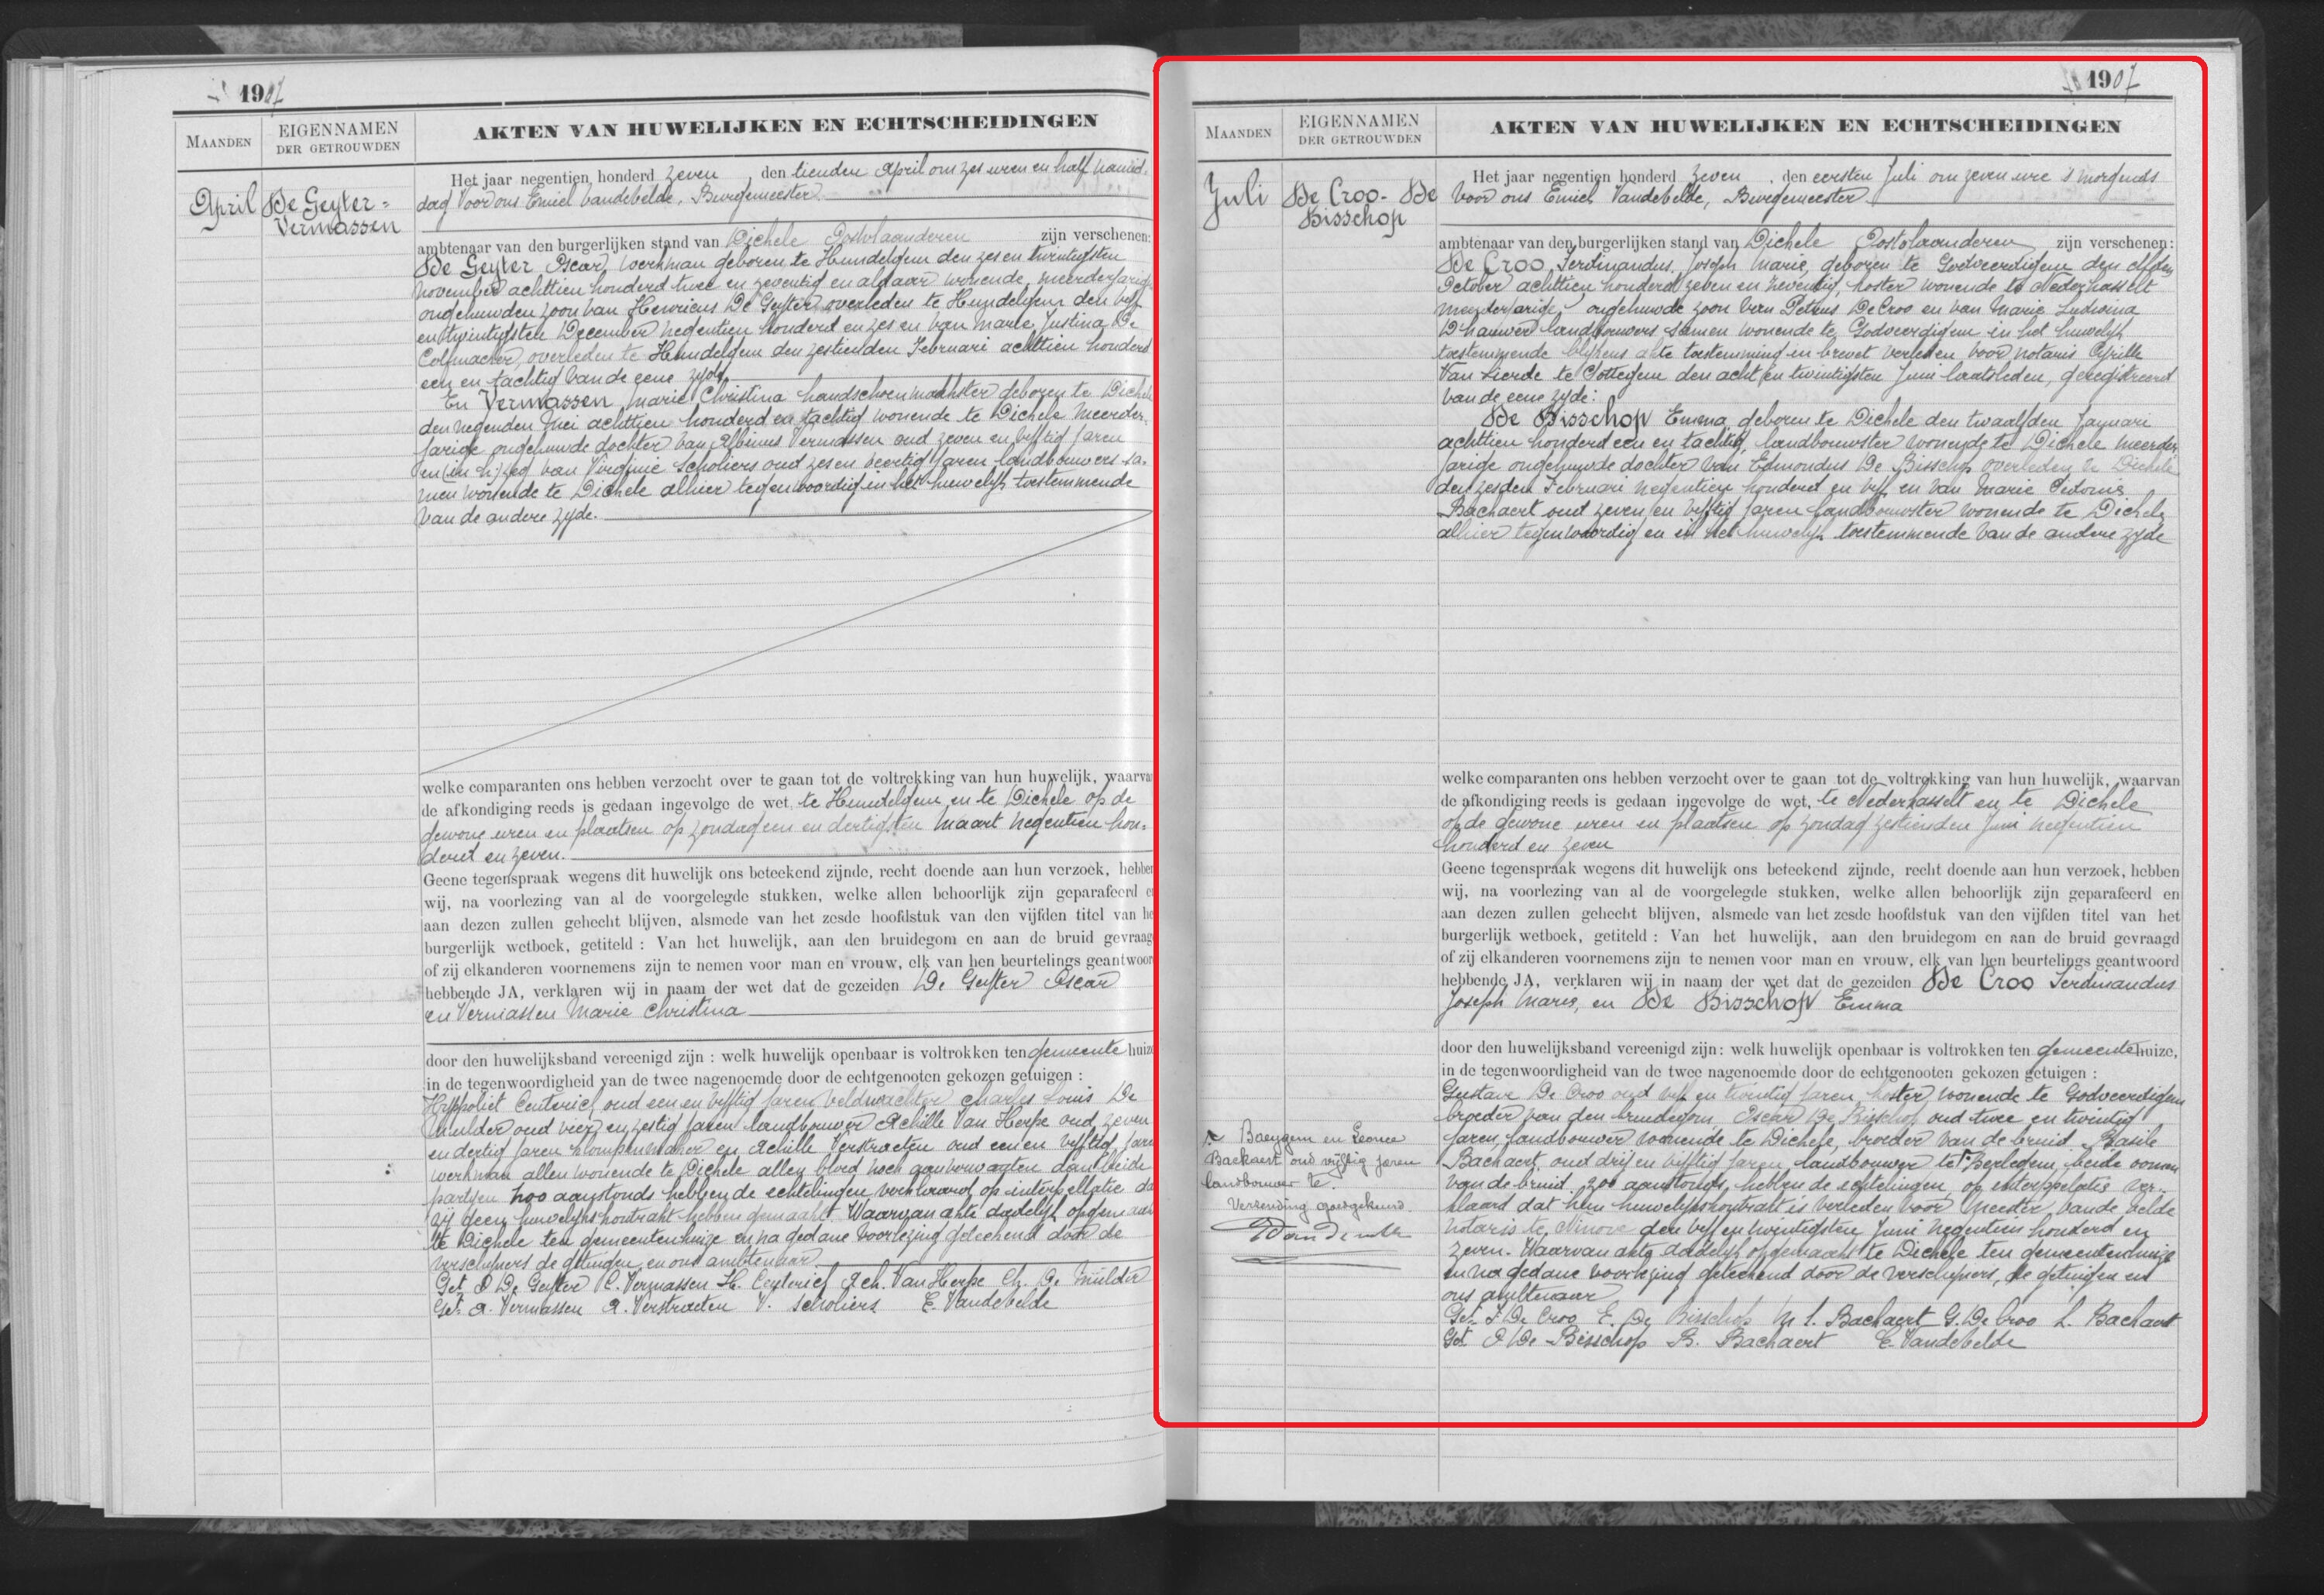 1907
MAANDEN
EIGENNAMEN
DER GETROUWDEN
AKTEN VAN HUWELIJKEN EN ECHTSCHEIDINGEN
April
De Geyter =
Vermassen
Het jaar negentien honderd zeven, den tienden April om zes uren en half namid-
dag Voor ons Emiel Vandevelde, Burgemeester
ambtenaar van den burgerlijken stand van Dichele Oostvlaanderen zijn verschenen:
De Geyter Oscar werkman geboren te Hundelgem den zes en twintigsten
november achttien honderd twee en zeventig en aldaar wonende, meerderjarig
ongehuwden zoon van Henricus De Geyter overleden te Hundelgem den vijf
en twintigsten December negentien honderd en zes en van Marie Justina De
overleden te Hundelgem den zestienden Februari achttien honderd
een en tachtig van de eene zyde
En Vermassen Marie Christina handschoenmaakster geboren te Dichele
den negenden Mei achttien honderd en tachtig wonende te Dichele meerder-
jarige ongehuwde dochter van Albinus Vermassen oud zeven en vyftig jaren
en van Virginie Scholiers oud zes en veertig jaren landbouwers sa-
men wonende te Dichele alhier tegenwoordig en in het huwelyk toestemmende
van de andere zyde.
welke comparanten ons hebben verzocht over te gaan tot de voltrekking van hun huwelijk, waarvan
de afkondiging reeds is gedaan ingevolge de wet, te Hundelgem en te Dichele op de
gewone uren en plaatsen op zondag een en dertigsten Maart negentien hon-
derd en zeven.
Geene tegenspraak wegens dit huwelijk ons beteekend zijnde, recht doende aan hun verzoek, hebben
wij, na voorlezing van al de voorgelegde stukken, welke allen behoorlijk zijn geparafeerd en
aan dezen zullen gehecht blijven, alsmede van het zesde hoofdstuk van den vijfden titel van he
burgerlijk wetboek, getiteld : Van het huwelijk, aan den bruidegom en aan de bruid gevraag
of zij elkanderen voornemens zijn te nemen voor man en vrouw, elk van hen beurtelings geantwoor
hebbende JA, verklaren wij in naam der wet dat de gezeiden De Geyter Oscar
en Vermassen Marie Christina
door den huwelijksband vereenigd zijn : welk huwelijk openbaar is voltrokken ten gemeente huize
in de tegenwoordigheid van de twee nagenoemde door de echtgenooten gekozen getuigen :
Hyppoliet Centerick oud een en vyftig jaren veldwachter Charles Louis De
Mulder oud vier en zestig jaren landbouwer Achille Van Herpe oud zeven
en dertig jaren klompenmaker en Achille Verstraeten oud een en vyftig jaren
werkman allen wonende te Dichele allen bloed noch aanverwanten van beide
partyen Zoo aanstonds hebben de echtelingen verklaard op interpellatie dat
zij geen huwelykskontrakt hebben gemaakt. Waarvan akte dadelyk opgemaakt
te Dichele ten gemeentenhuize en na gedane voorlezing geteekend door de
verschijners de getuigen en ons ambtenaar.
Get. O De Geyter C. Vermassen H. Centerick Ach. Van Herpe Ch. De Mulder
Get. A. Vermassen A. Verstraeten V. Scholiers E. Vandevelde
1907
MAANDEN
EIGENNAMEN
DER GETROUWDEN
AKTEN VAN HUWELIJKEN EN ECHTSCHEIDINGEN
Juli
De Croo - De
Bisschop
Het jaar negentien honderd zeven, den eersten Juli om zeven ure 's morgends
Voor ons Emiel Vandevelde, Burgemeester
ambtenaar van den burgerlijken stand van Dichele Oostvlaanderen zijn verschenen:
De Croo Ferdinandus Joseph Marie, geboren te Godveerdigem den elfden
October achttien honderd zeven en zeventig, koster wonende te Nederhasselt
meerderjarige ongehuwde zoon van Petrus De Croo en van Marie Ludovica
D'hauwer landbouwers samen wonende te Godveerdigem in het huwelyk
toestemmende blykens akte toestemming in brevet verleden voor notaris Cyrille
Van Lierde te Sottegem den acht en twintigsten Juni laatsleden, geregistreerd
van de eene zyde:
De Bisschop Emma, geboren te Dichele den twaalfden January
achttien honderd een en tachtig, landbouwster wonende te Dichele meerder
jarige ongehuwde dochter van Edmondus De Bisschop overleden te Dichele
den zesden Februari negentien honderd en vyf en van Marie Sidonie
Backaert oud zeven en vyftig jaren landbouwster wonende te Dichele
alhier tegenwoordig en in het huwelyk toestemmende van de andere zyde
welke comparanten ons hebben verzocht over te gaan tot de voltrekking van hun huwelijk, waarvan
de afkondiging reeds is gedaan ingevolge de wet, te Nederhasselt en te Dichele
op de gewone uren en plaatsen op zondag zestienden Juni negentien
honderd en zeven
Geene tegenspraak wegens dit huwelijk ons beteekend zijnde, recht doende aan hun verzoek, hebben
wij, na voorlezing van al de voorgelegde stukken, welke allen behoorlijk zijn geparafeerd en
aan dezen zullen gehecht blijven, alsmede van het zesde hoofdstuk van den vijfden titel van het
burgerlijk wetboek, getiteld : Van het huwelijk, aan den bruidegom en aan de bruid gevraagd
of zij elkanderen voornemens zijn te nemen voor man en vrouw, elk van hen beurtelings geantwoord
hebbende JA, verklaren wij in naam der wet dat de gezeiden De Croo Ferdinandus
Joseph Marie, en De Bisschop Emma
door den huwelijksband vereenigd zijn: welk huwelijk openbaar is voltrokken ten gemeente huize,
in de tegenwoordigheid van de twee nagenoemde door de echtgenooten gekozen getuigen :
Gustave De Croo oud vyf en twintig jaren, koster, wonende te Godveerdigem
broeder van den bruidegom, Oscar De Bisschop oud twee en twintig
jaren, landbouwer wonende te Dichele, broeder van de bruid, Basile
Backaert, oud drij en vyftig jaren, landbouwer te Beerlegem, beide oomen
van de bruid, zoo aanstonds hebben de echtelingen op interpelatie ver-
klaard dat hun huwelykskontrakt is verleden voor Meester Vande Velde
notaris te Ninove den vyf en twintigsten Juni negentien honderd en
zeven. Waarvan akte dadelyk opgemaakt te Dichele ten gemeentenhuize
en na gedane voorlezing geteekend door de verschijners, de getuigen en
ons ambtenaar
Get. F De Croo E. De Bisschop M S. Backaert G. De Croo L. Backaert
Get. O De Bisschop B. Backaert E. Vandevelde
Baeygem en Leonce
Backaert oud vijftig jaren
landbouwer te.
Verzending goedgekeurd.